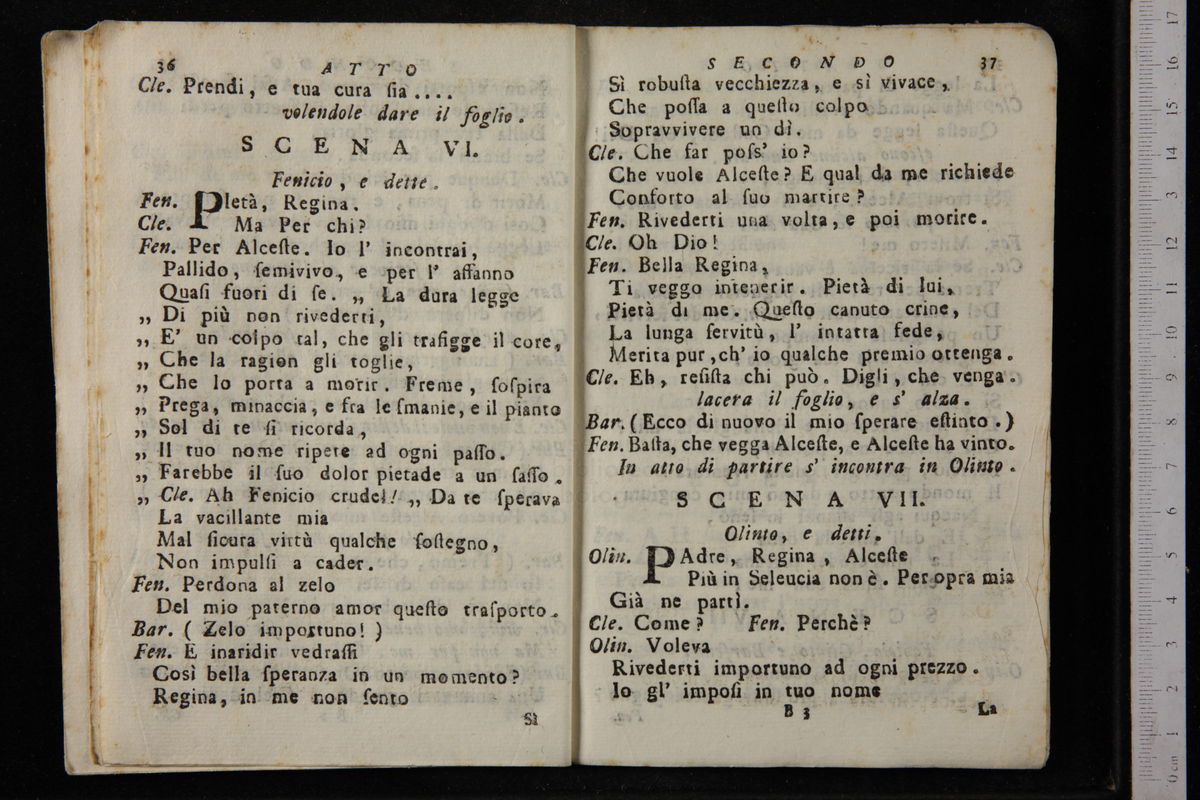 36 ATTO
Cle. Prendi, e tua cura ſia....
volendole dare il foglio.
SCENA VI.
Fenicio, e dette.
Fen. PIetà, Regina.
Cle. Ma Per chi?
Fen. Per Alceſte. Io l' incontrai,
Pallido, ſemivivo, e per l' affanno
Quaſi fuori di ſe. „ La dura legge
„ Di più non rivederti,
„ E' un colpo tal, che gli trafigge il core,
„ Che la ragion gli toglie,
„ Che lo porta a morir. Freme, ſoſpira
„ Prega, minaccia, e fra le ſmanie, e il pianto
„ Sol di te ſi ricorda,
„ Il tuo nome ripete ad ogni paſſo.
„ Farebbe il ſuo dolor pietade a un ſaſſo.
„ Cle. Ah Fenicio crudel! „ Da te ſperava
La vacillante mia
Mal ſicura virtù qualche ſoſtegno,
Non impulſi a cader.
Fen. Perdona al zelo
Del mio paterno amor queſto traſporto.
Bar. ( Zelo importuno! )
Fen. E inaridir vedraſſi
Così bella ſperanza in un momento?
Regina, in me non ſento
Sì
SECONDO 37
Sì robuſta vecchiezza, e sì vivace,
Che poſſa a queſto colpo
Sopravvivere un dì.
Cle. Che far poſs' io?
Che vuole Alceſte? E qual da me richiede
Conforto al ſuo martire?
Fen. Rivederti una volta, e poi morire.
Cle. Oh Dio!
Fen. Bella Regina,
Ti veggo intenerir. Pietà di lui,
Pietà di me. Queſto canuto crine,
La lunga ſervitù, l' intatta fede,
Merita pur, ch' io qualche premio ottenga.
Cle. Eh, reſiſta chi può. Digli, che venga.
lacera il foglio, e s' alza.
Bar. (Ecco di nuovo il mio ſperare eſtinto.)
Fen. Baſta, che vegga Alceſte, e Alceſte ha vinto.
In atto di partire s' incontra in Olinto.
SCENA VII.
Olinto, e detti.
Olin. PAdre, Regina, Alceſte
Più in Seleucia non è. Per opra mia
Già ne partì.
Cle. Come? Fen. Perchè?
Olin. Voleva
Rivederti importuno ad ogni prezzo.
Io gl' impoſi in tuo nome
B 3 La
0 cm 1 2 3 4 5 6 7 8 9 10 11 12 13 14 15 16 17